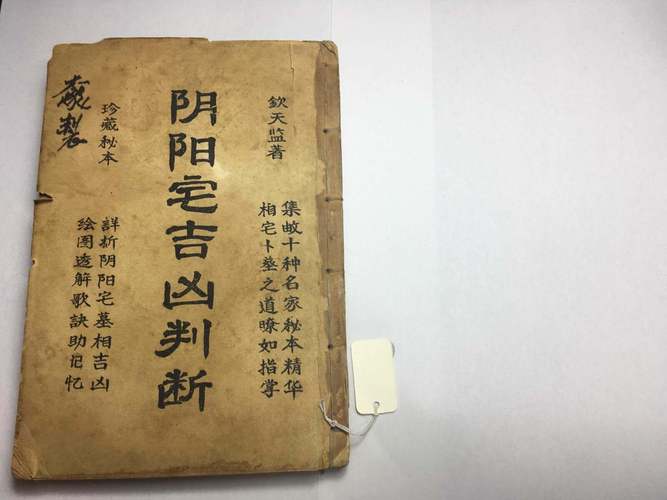 欽天监著
集蚊十种名家秘本精华
相宅卜墓之道瞭如指掌
阴阳宅吉凶判断
珍藏秘本
詳析阴阳宅墓相吉凶
绘图透解歌訣助记忆
製